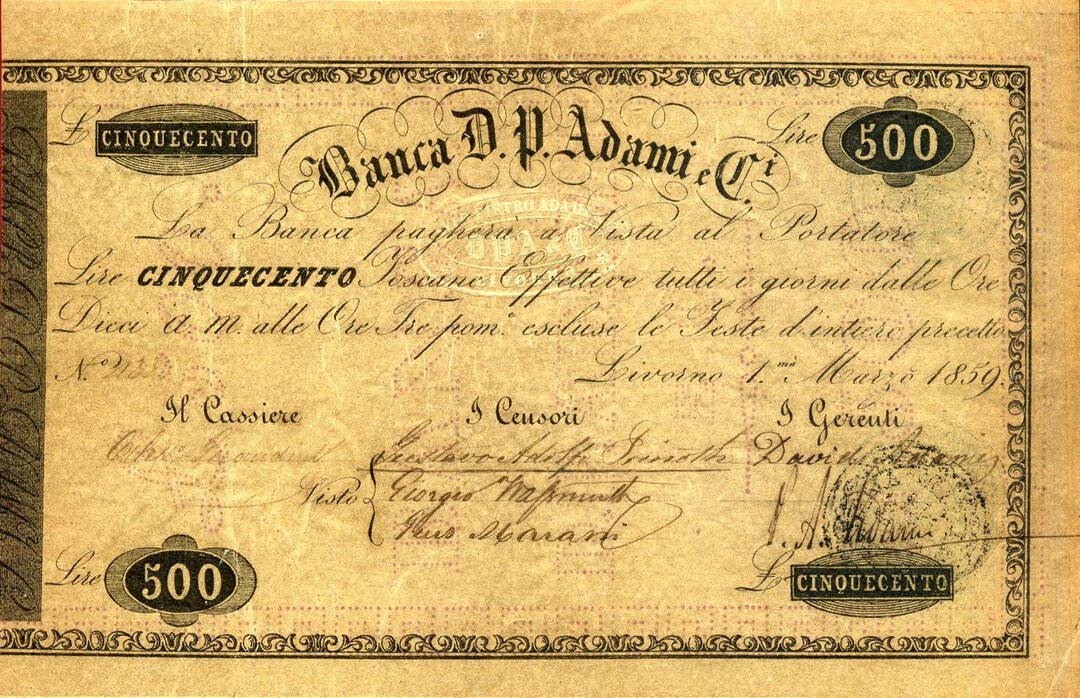 £ CINQUECENTO
Banca D. P. Adami e C.i
Lire 500
La Banca pagherà a Vista al Portatore
Lire CINQUECENTO Toscane Effettive tutti i giorni dalle Ore
Dieci a. m. alle Ore Tre pom.e escluse le Feste d'intiero precetto
N.o
Livorno 1.mo Marzo 1859.
Il Cassiere
I Censori
I Gerenti
Gustavo Adolfo
David Adami
Visto
Giorgio
Marani
Adami
Lire 500
£ CINQUECENTO